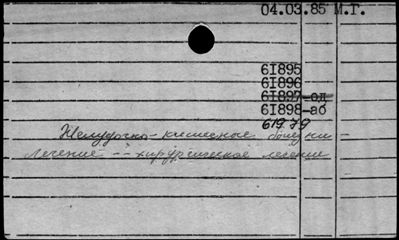 04.03.85 М.Г.
61895
61896
61897-ол
61898-аб
61979
Желудочно-кишечные болезни -
лечение -- хирургическое лечение